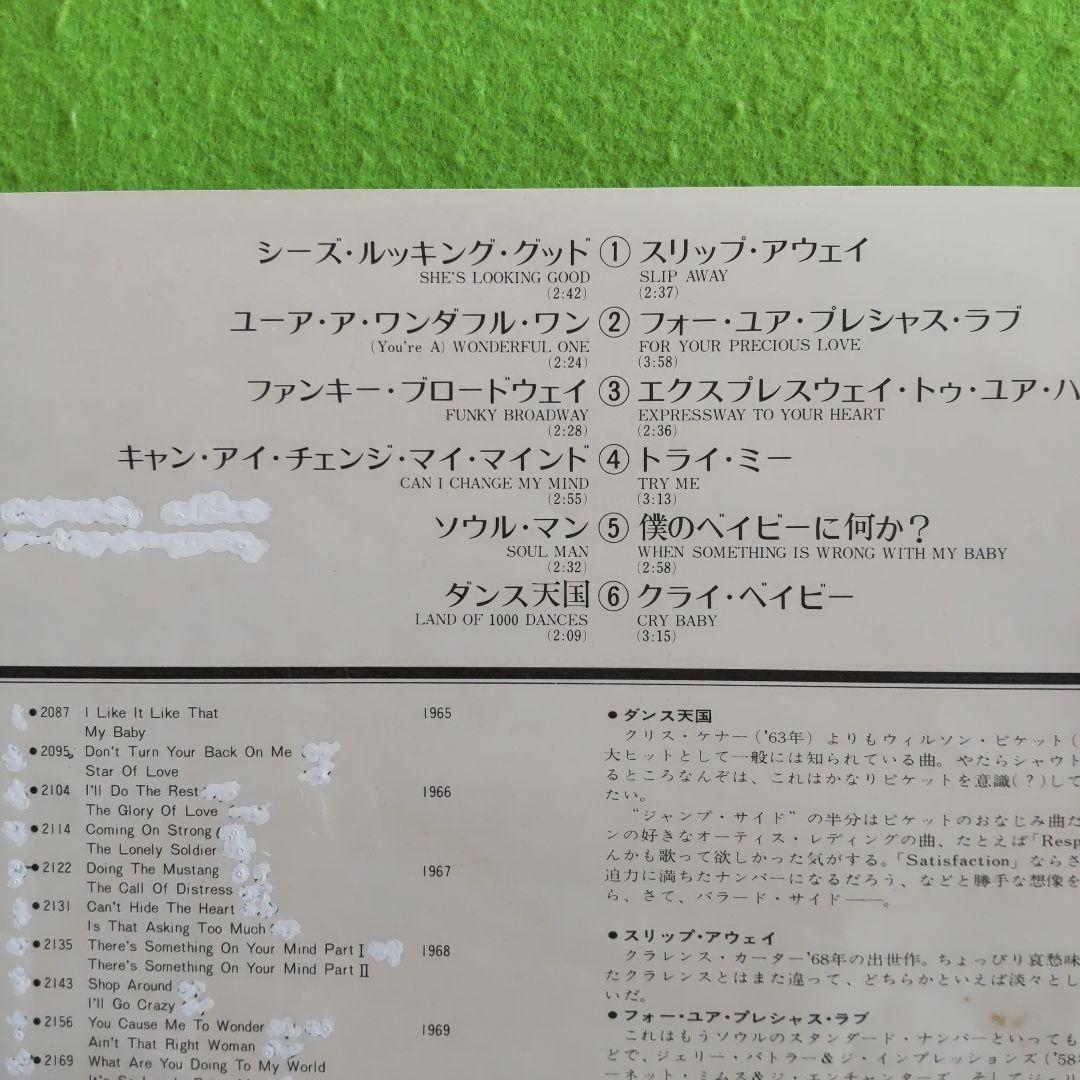 シーズ・ルッキング・グッド ① スリップ・アウェイ
SHE'S LOOKING GOOD SLIP AWAY
(2:42) (2:37)
ユーア・ア・ワンダフル・ワン ② フォー・ユア・プレシャス・ラブ
(You're A) WONDERFUL ONE FOR YOUR PRECIOUS LOVE
(2:24) (3:58)
ファンキー・ブロードウェイ ③ エクスプレスウェイ・トゥ・ユア・ハ
FUNKY BROADWAY EXPRESSWAY TO YOUR HEART
(2:28) (2:36)
キャン・アイ・チェンジ・マイ・マインド ④ トライ・ミー
CAN I CHANGE MY MIND TRY ME
(2:55) (3:13)
ソウル・マン ⑤ 僕のベイビーに何か？
SOUL MAN WHEN SOMETHING IS WRONG WITH MY BABY
(2:32) (2:58)
ダンス天国 ⑥ クライ・ベイビー
LAND OF 1000 DANCES CRY BABY
(2:09) (3:15)
●2087 I Like It Like That 1965
My Baby
●2095 Don't Turn Your Back On Me
Star Of Love
●2104 I'll Do The Rest 1966
The Glory Of Love
●2114 Coming On Strong
The Lonely Soldier
●2122 Doing The Mustang 1967
The Call Of Distress
●2131 Can't Hide The Heart
Is That Asking Too Much
●2135 There's Something On Your Mind Part I 1968
There's Something On Your Mind Part II
●2143 Shop Around
I'll Go Crazy
●2156 You Cause Me To Wonder 1969
Ain't That Right Woman
●2169 What Are You Doing To My World
●ダンス天国
クリス・ケナー('63年) よりもウィルソン・ピケット(
大ヒットとして一般には知られている曲。やたらシャウト
るところなんぞは、これはかなりピケットを意識(？)して
たい。
“ジャンプ・サイド”の半分はピケットのおなじみ曲だ
ンの好きなオーティス・レディングの曲、たとえば「Resp
んかも歌って欲しかった気がする。「Satisfaction」ならさ
迫力に満ちたナンバーになるだろう、などと勝手な想像を
ら、さて、バラード・サイド――。
●スリップ・アウェイ
クラレンス・カーター'68年の出世作。ちょっぴり哀愁味
たクラレンスとはまた違って、どちらかといえば淡々とし
いだ。
●フォー・ユア・プレシャス・ラブ
これはもうソウルのスタンダード・ナンバーといっても
どで、ジェリー・バトラー＆ジ・インプレッションズ('58年
ーネット・ミムス＆ジ・エンチャンターズ、そしてジェリ